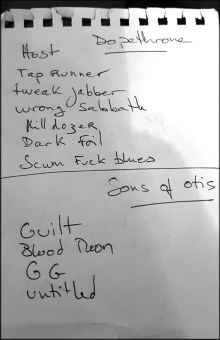 Dopethrone
Host
Tap Runner
tweak jabber
wrong Sabbath
Killdozer
Dark foil
Scum Fuck blues
Sons of otis
Guilt
Blood Moon
GG
untitled